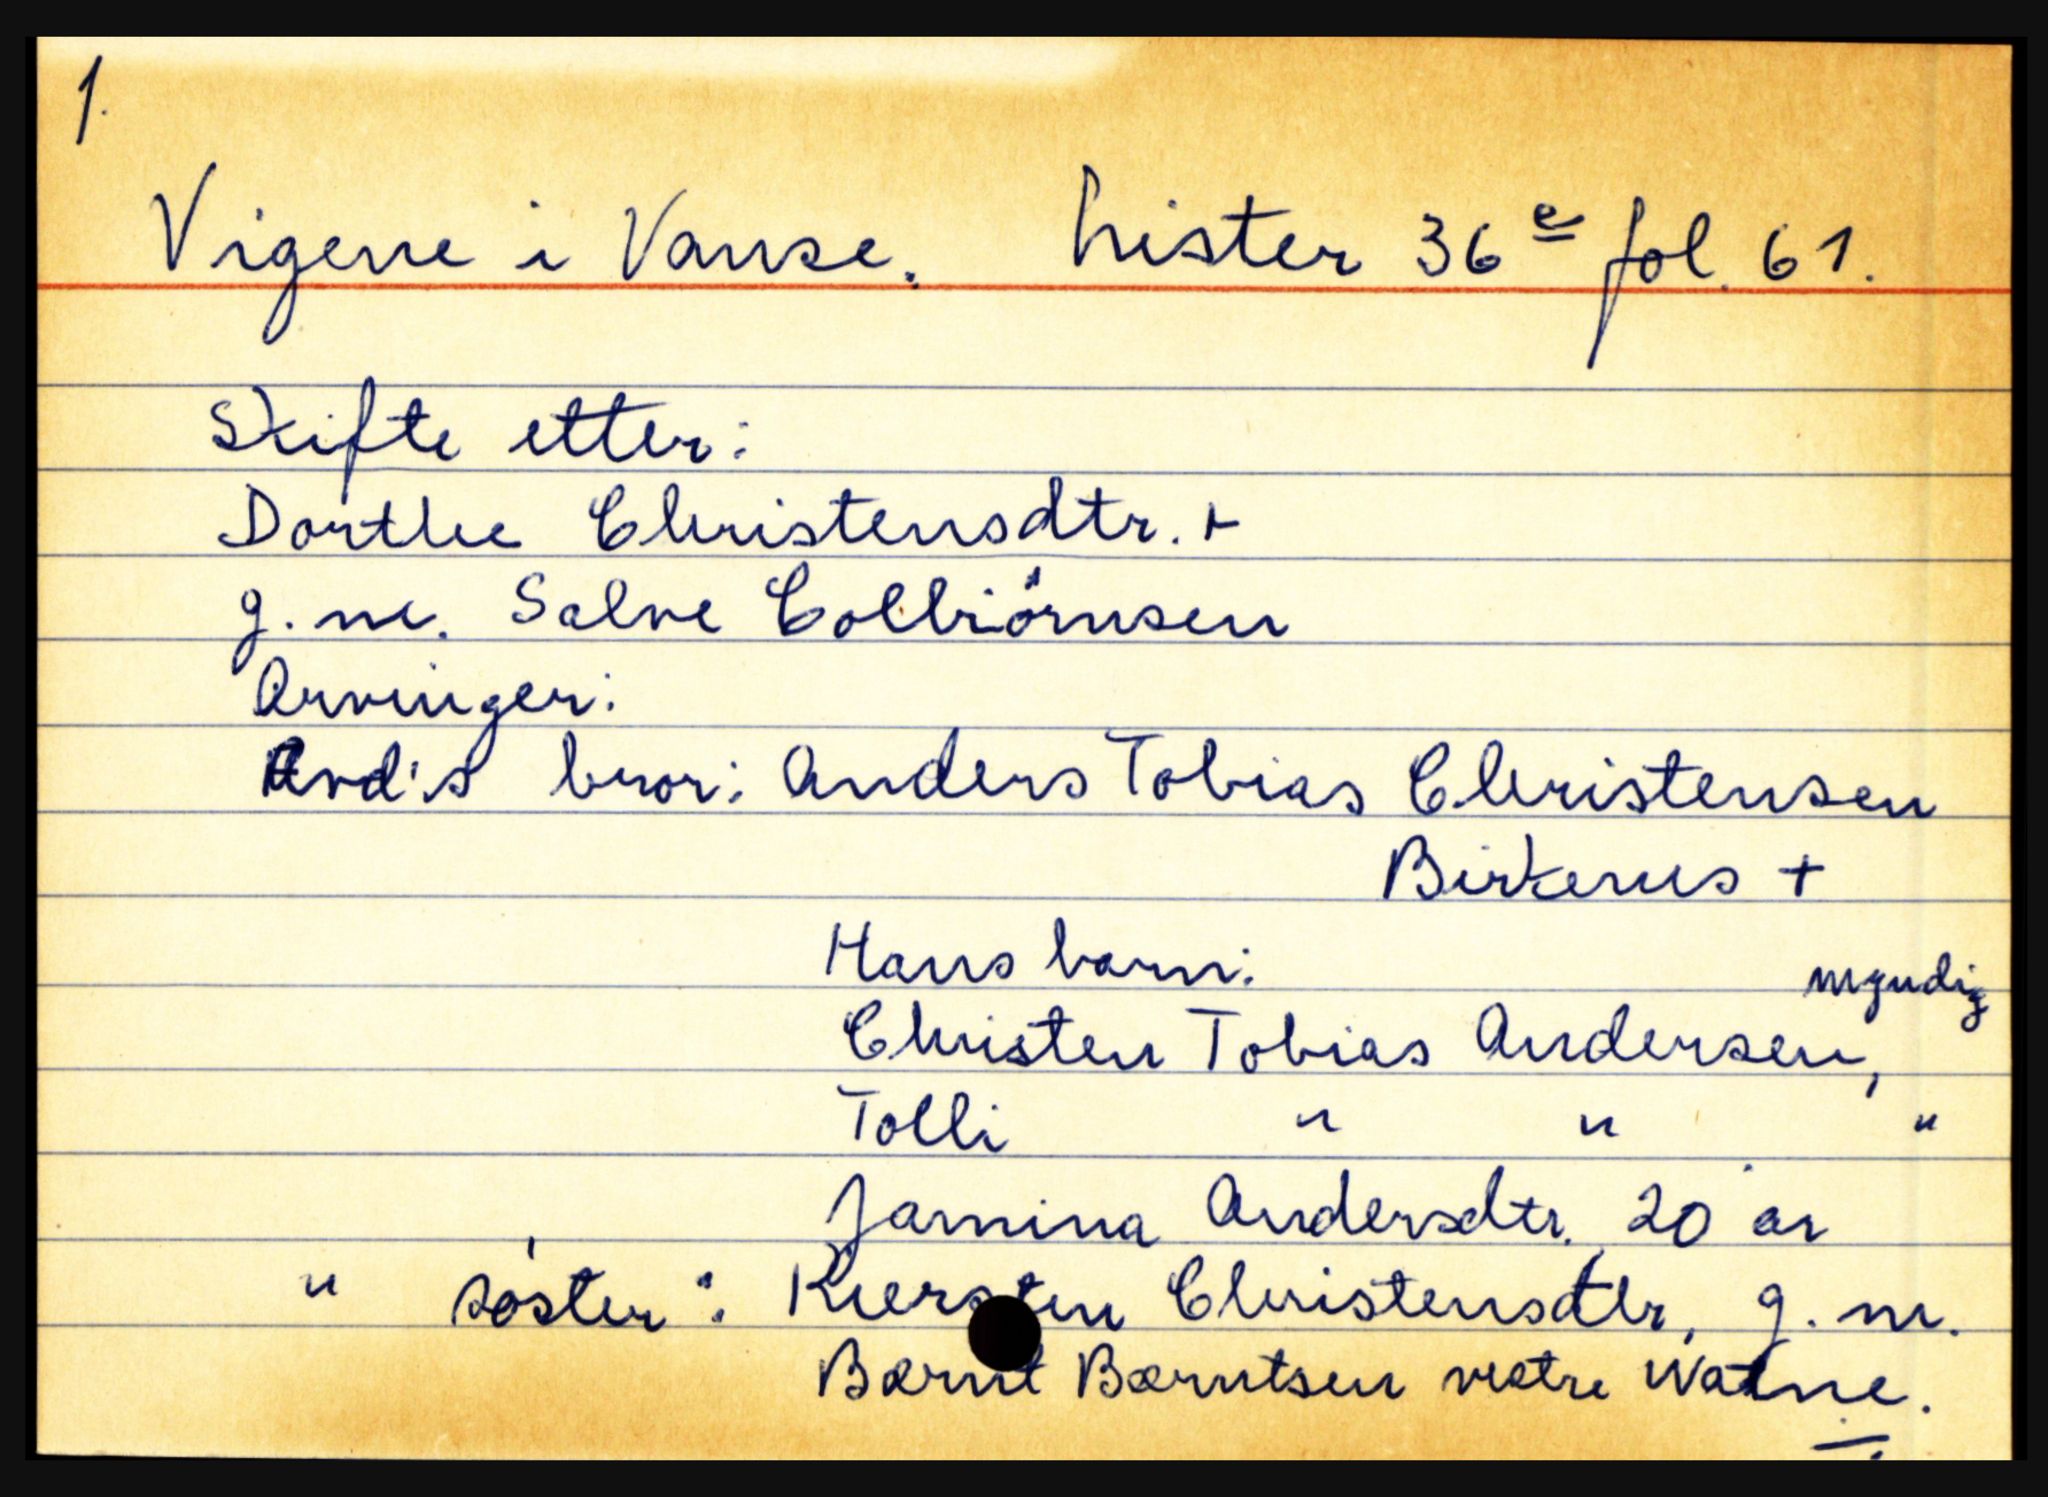 1.
Vigene i Vanse. Lister 36 e fol. 61.
Skifte etter:
Dorthe Christensdtr. +
g. m. Salve Colbiörnsen
Arvinger:
Avd's bror: Anders Tobias Christensen
Birkenes +
Hans barn:
myndig
Christen Tobias Andersen,
Tolli " " "
Jamina Andersdtr. 20 år
" søster: Kiersten Christensdtr, g. m.
Bærnt Bærntsen vestre Watne.